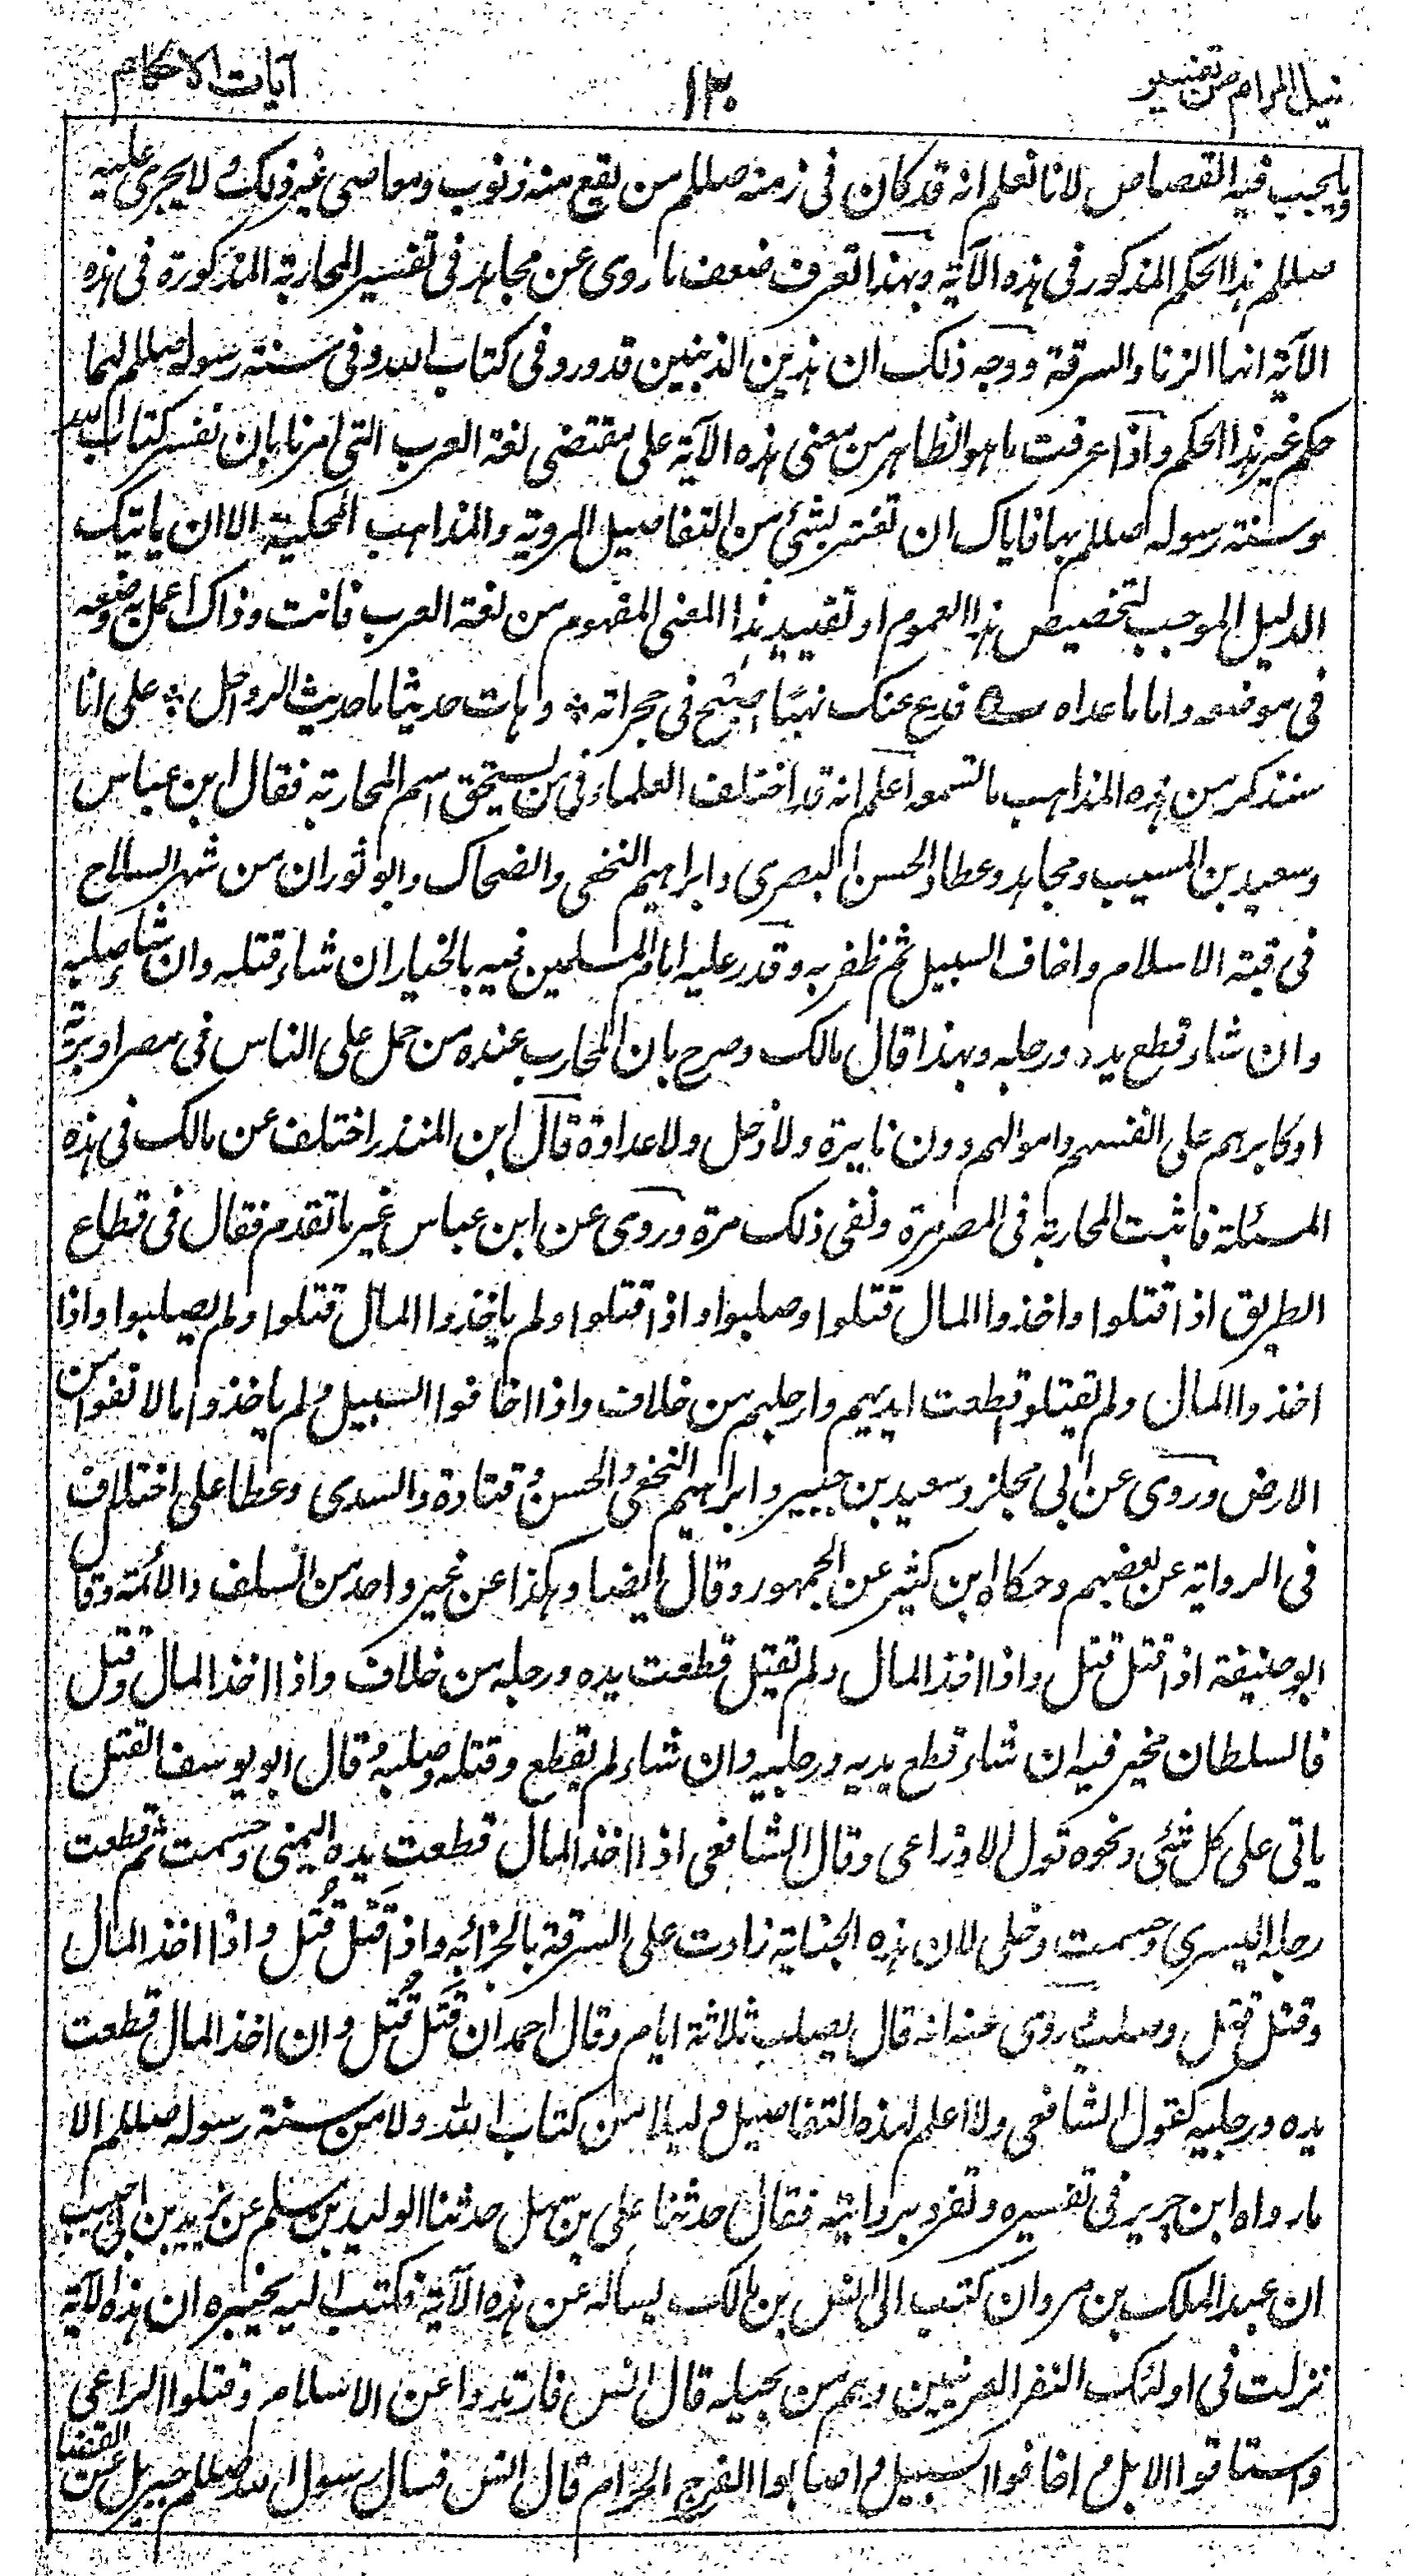 نيل المرام من تفسير ١٣٠ آيات الاحكام
ويجب فيه القصاص لانا نعلم انه قد كان فى زمنه صللم من تقع منه ذنوب ومعاصى غير ذلك ولا يجرى عليه
صللم هذا الحكم المذكور فى هذه الآية وبهذا تعرف ضعف ما روى عن مجاهد فى تفسير المحاربة المذكورة فى هذه
الآية انها الزنا والسرقة ووجه ذلك ان هذين الذنبين قد ورد فى كتاب الله وفى سنة رسوله صللم لهما
حكم غير هذا الحكم واذا عرفت ما هو الظاهر من معنى هذه الآية على مقتضى لغة العرب التى امرنا بان نفسر كتاب الله
وسنة رسوله صللم بها فاياك ان تغتر بشئ من التفاصيل المروية والمذاهب المحكية الا ان ياتيك
الدليل الموجب لتخصيص هذا العموم او تقييد هذا المعنى المفهوم من لغة العرب فانت وذاك اعمل به وضعه
فى موضعه واما ما عداه فدع عنك نهبًا صيح فى حجراته ٭ وهات حديثا ما حديث الرواحل ٭ على انا
سنذكر من هذه المذاهب ما تسمعه اعلم انه قد اختلف العلماء فى من يستحق اسم المحاربة فقال ابن عباس
وسعيد بن المسيب ومجاهد وعطا والحسن البصرى وابراهيم النخعى والضحاك وابو ثور ان من شهر السلاح
فى قبة الاسلام واخاف السبيل ثم ظفر به وقدر عليه امام المسلمين فيه بالخيار ان شاء قتله وان شاء صلبه
وان شاء قطع يده ورجله وبهذا قال مالك وصرح بان المحارب عنده من حمل على الناس فى مصر او برية
او كابرهم على انفسهم واموالهم دون نايرة ولا ذحل ولا عداوة قال ابن المنذر اختلف عن مالك فى هذه
المسئلة فاثبت المحاربة فى المصر مرة ونفى ذلك مرة وروى عن ابن عباس غير ما تقدم فقال فى قطاع
الطريق اذا قتلوا واخذوا المال قتلوا وصلبوا واذا قتلوا ولم ياخذوا المال قتلوا ولم يصلبوا واذا
اخذوا المال ولم يقتلوا قطعت ايديهم وارجلهم من خلاف واذا اخافوا السبيل ولم ياخذوا مالا نفوا من
الارض وروى عن ابى مجلز وسعيد بن جبير وابراهيم النخعى والحسن وقتادة والسدى وعطا على اختلاف
فى الرواية عن بعضهم وحكاه ابن كثير عن الجمهور وقال ايضا وهكذا عن غير واحد من السلف والائمة وقال
ابو حنيفة اذا قتل قتل واذا اخذ المال ولم يقتل قطعت يده ورجله من خلاف واذا اخذ المال وقتل
فالسلطان مخير فيه ان شاء قطع يديه ورجليه وان شاء لم يقطع وقتله وصلبه وقال ابو يوسف القتل
ياتى على كل شئ ونحوه قول الاوزاعى وقال الشافعى اذا اخذ المال قطعت يده اليمنى وحسمت ثم قطعت
رجله اليسرى وحسمت وخلى لان هذه الجناية زادت على السرقة بالحرابه واذا قَتَل قُتِل واذا اخذ المال
وقتل قتل وصلب وروى عنه انه قال يصلب ثلاثة ايام وقال احمد ان قَتَل قُتِل وان اخذ المال قطعت
يده ورجليه كقول الشافعى ولا اعلم لهذه التفاصيل دليلا من كتاب الله ولا من سنة رسوله صللم الا
ما رواه ابن جرير فى تفسيره وتفرد بروايته فقال حدثنا على بن سهل حدثنا الوليد بن مسلم عن يزيد بن ابى حبيب
ان عبد الملك بن مروان كتب الى انس بن مالك يساله عن هذه الآية فكتب اليه يخبره ان هذه الآية
نزلت فى اولئك النفر العرنيين وهم من بجيله قال انس فارتدوا عن الاسلام وقتلوا الراعى
واستاقوا الابل واخافوا السبيل واصابوا الفرج الحرام قال انس فسال رسول الله صللم جبريل عن القضا